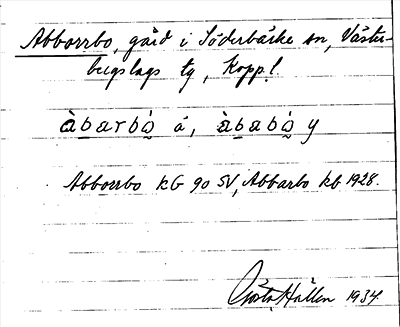 Abborrbo, gård i Söderbärke sn, Väster-
bergslags tg, Koppl.
àbarbó̠ ä, àbabó̠ y
Abborrbo KG 90 SV, Abbarbo kb 1928.
Gösta Hallén 1934.